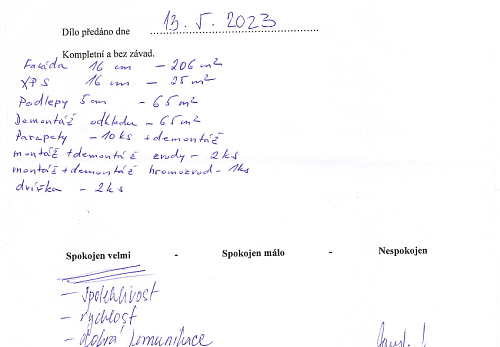 Dílo předáno dne 13. V. 2023
Kompletní a bez závad.
Fasáda 16 cm - 206 m²
XPS 16 cm - 25 m²
Podlepy 5 cm - 65 m²
Demontáž odkladu - 65 m²
Parapety - 10 ks + demontáž
montáž + demontáž zvody - 2 ks
montáž + demontáž hromozvod - 1 ks
dvířka - 2 ks
Spokojen velmi - Spokojen málo - Nespokojen
- spolehlivost
- rychlost
- dobrá komunikace